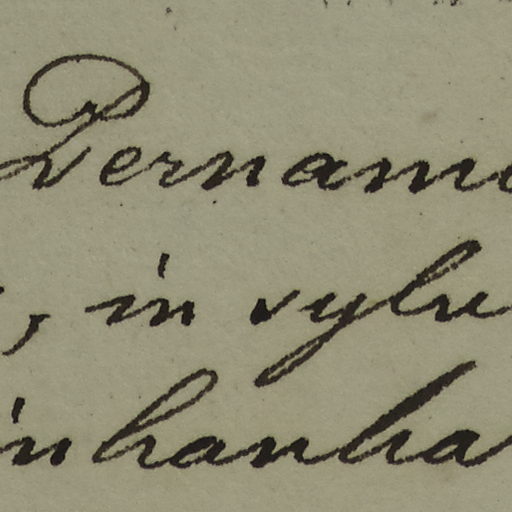 Pernam
, in sylv
inhanha